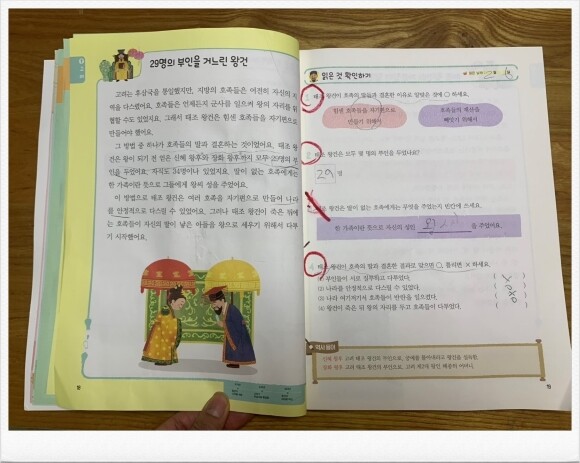 29명의 부인을 거느린 왕건
고려는 후삼국을 통일했지만, 지방의 호족들은 여전히 자신의 지
역을 다스렸어요. 호족들은 언제든지 군사를 일으켜 왕의 자리를 위
협할 수도 있었지요. 그래서 태조 왕건은 힘센 호족들을 자기편으로
만들어야 했어요.
그 방법 중 하나가 호족의 딸과 결혼하는 것이었어요. 태조 왕
건은 왕이 되기 전 얻은 신혜 왕후와 장화 왕후까지 모두 29명의 부
인을 두었어요. 자식도 34명이나 있었지요. 딸이 없는 호족에게는
한 가족이란 뜻으로 그들에게 왕씨 성을 주었어요.
이 방법으로 태조 왕건은 여러 호족을 자기편으로 만들어 나라
를 안정적으로 다스릴 수 있었어요. 그러나 태조 왕건이 죽은 뒤에
는 호족들이 자신의 딸이 낳은 아들을 왕으로 세우기 위해서 다투
기 시작했어요.
18
읽은 것 확인하기
태조 왕건이 호족의 딸들과 결혼한 이유로 알맞은 것에 ○ 하세요.
힘센 호족들을 자기편으로
만들기 위해서
호족들의 재산을
빼앗기 위해서
태조 왕건은 모두 몇 명의 부인을 두었나요?
29 명
왕건은 딸이 없는 호족에게는 무엇을 주었는지 빈칸에 쓰세요.
한 가족이란 뜻으로 자신의 성인 을 주었어요.
태조 왕건이 호족의 딸과 결혼한 결과로 맞으면 ○, 틀리면 × 하세요.
(1) 부인들이 서로 질투하고 다투었다.
(2) 나라를 안정적으로 다스릴 수 있었다.
(3) 나라 여기저기서 호족들이 반란을 일으켰다.
(4) 왕건이 죽은 뒤 왕의 자리를 두고 호족들이 다투었다.
역사 용어
신혜 왕후 고려 태조 왕건의 부인으로,
장화 왕후 고려 태조 왕건의 부인으로, 고려 제2대 왕인 혜종의 어머니.
19